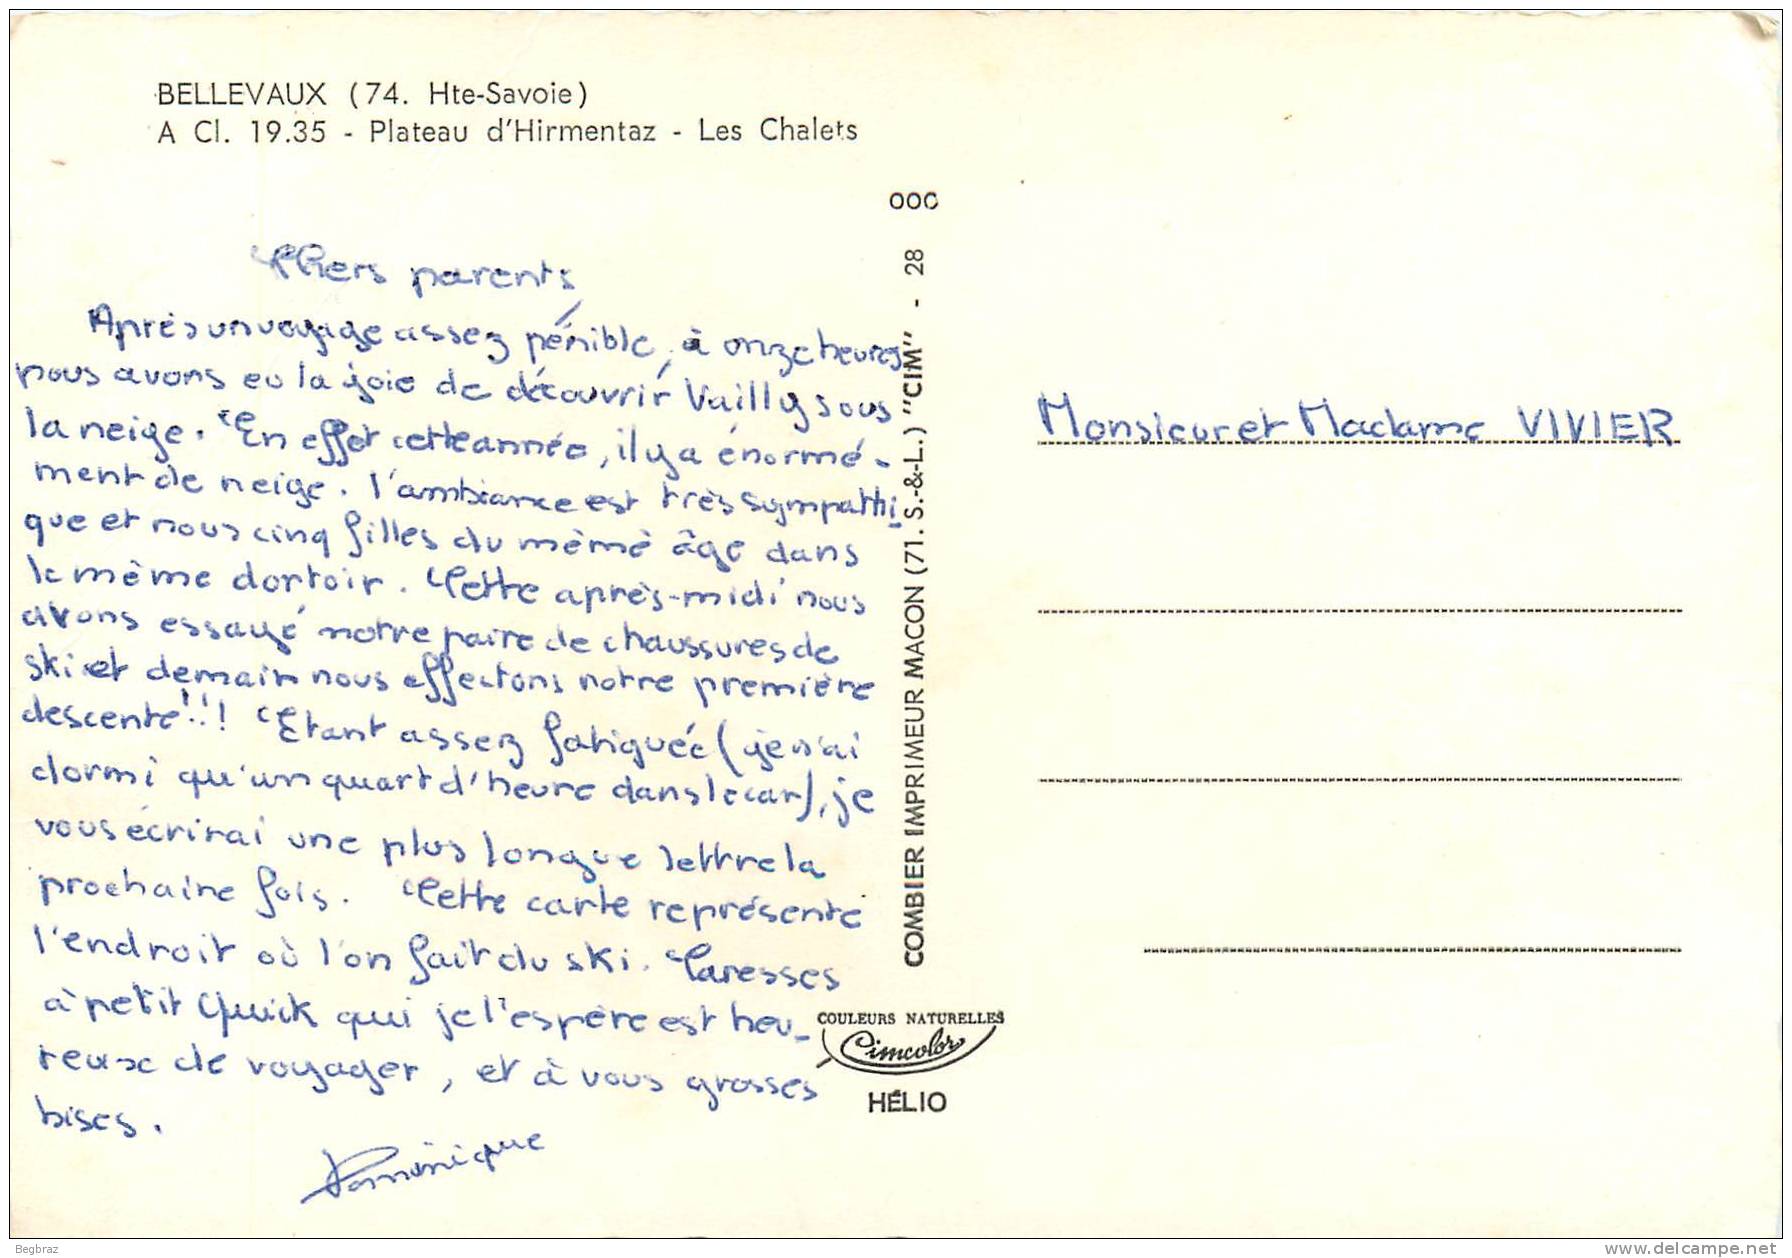 BELLEVAUX (74. Hte-Savoie)
A Cl. 19.35 - Plateau d'Hirmentaz - Les Chalets
Chers parents,
Après un voyage assez pénible, à onze heures
nous avons eu la joie de découvrir Vailly sous
la neige. En effet cette année, il y a énormé-
ment de neige. l'ambiance est très sympathi-
que et nous cinq filles du même âge dans
le même dortoir. Cette après-midi nous
avons essayé notre paire de chaussures de
ski et demain nous effectons notre première
descente!!! Etant assez fatiguée (je n'ai
dormi qu'un quart d'heure dans le car), je
vous écrirai une plus longue lettre la
prochaine fois. Cette carte représente
l'endroit où l'on fait du ski. Caresses
à petit Quick qui je l'espère est heu-
reux de voyager, et à vous grosses
bises.
Dominique
OOC
COMBIER IMPRIMEUR MACON (71. S.-&-L.) "CIM" - 28
COULEURS NATURELLES
Cimcolor
HÉLIO
Monsieur et Madame VIVIER
Begbraz
www.delcampe.net